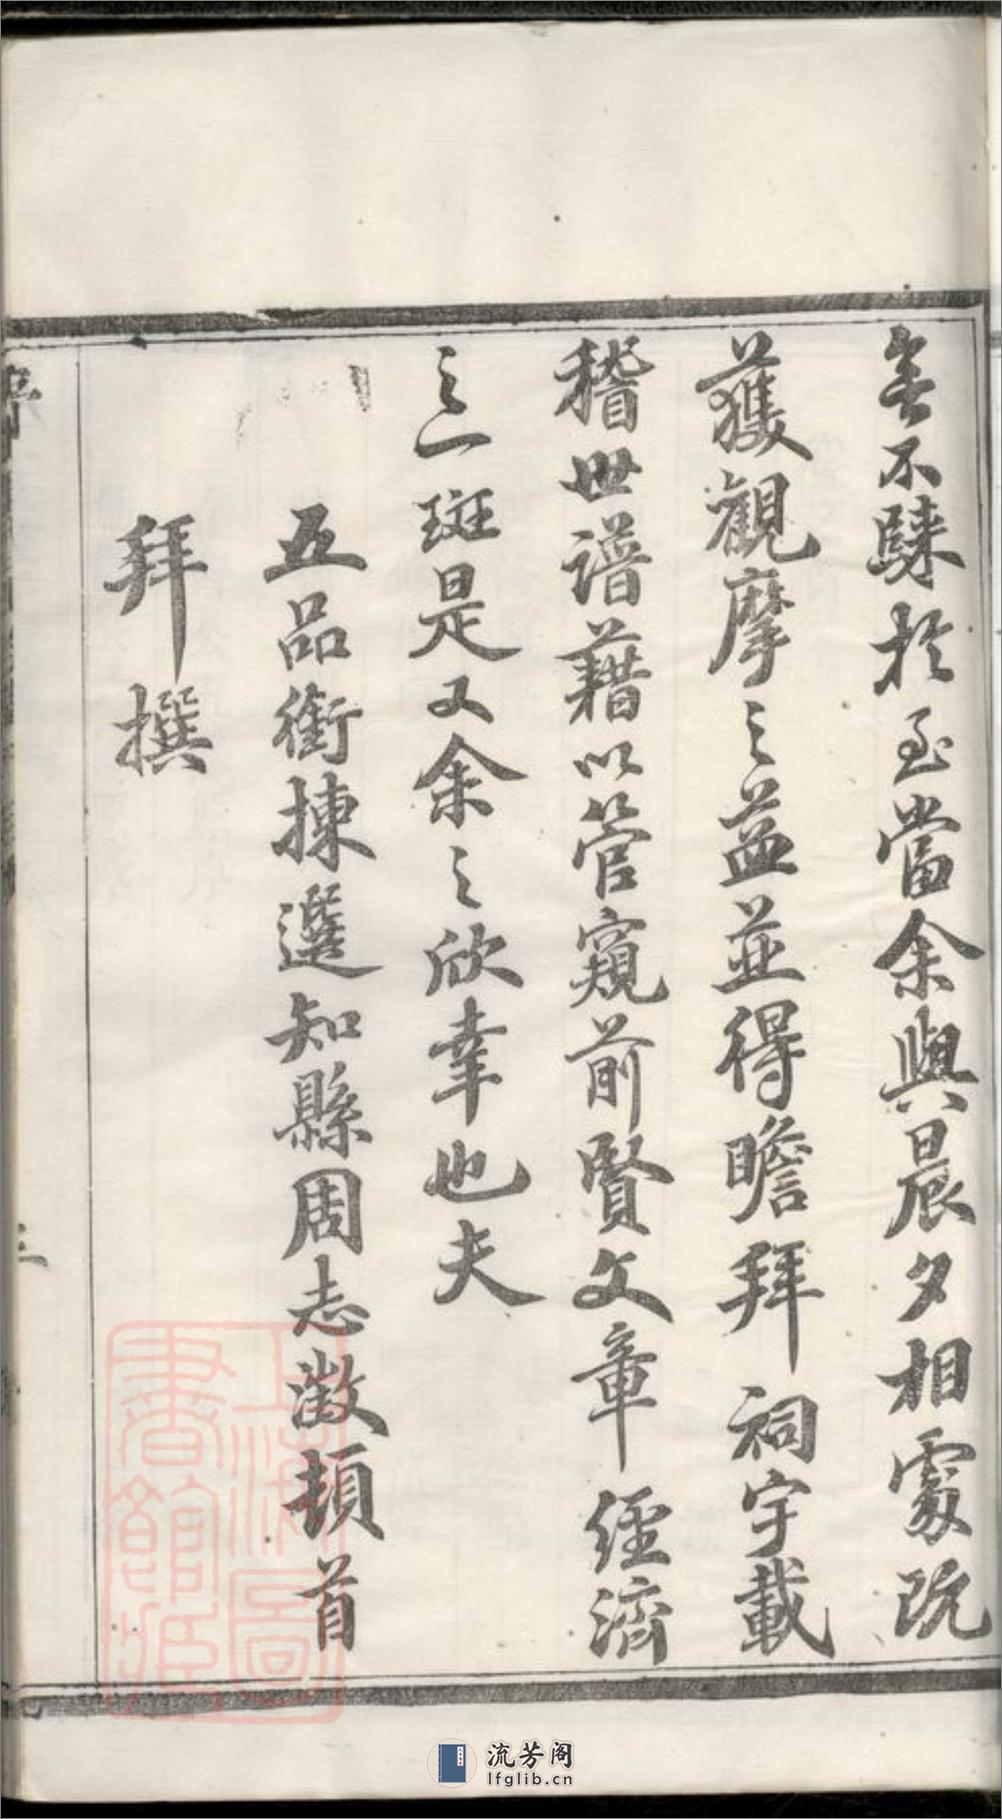 無不歸於至當余與晨夕相處既
獲觀摩之益並得瞻拜祠宇載
稽世譜藉以管窺前賢文章經濟
之一斑是又余之欣幸也夫
五品銜揀選知縣周志澂頓首
拜撰
序
三
上海圖書館藏
流芳阁
lfglib.cn